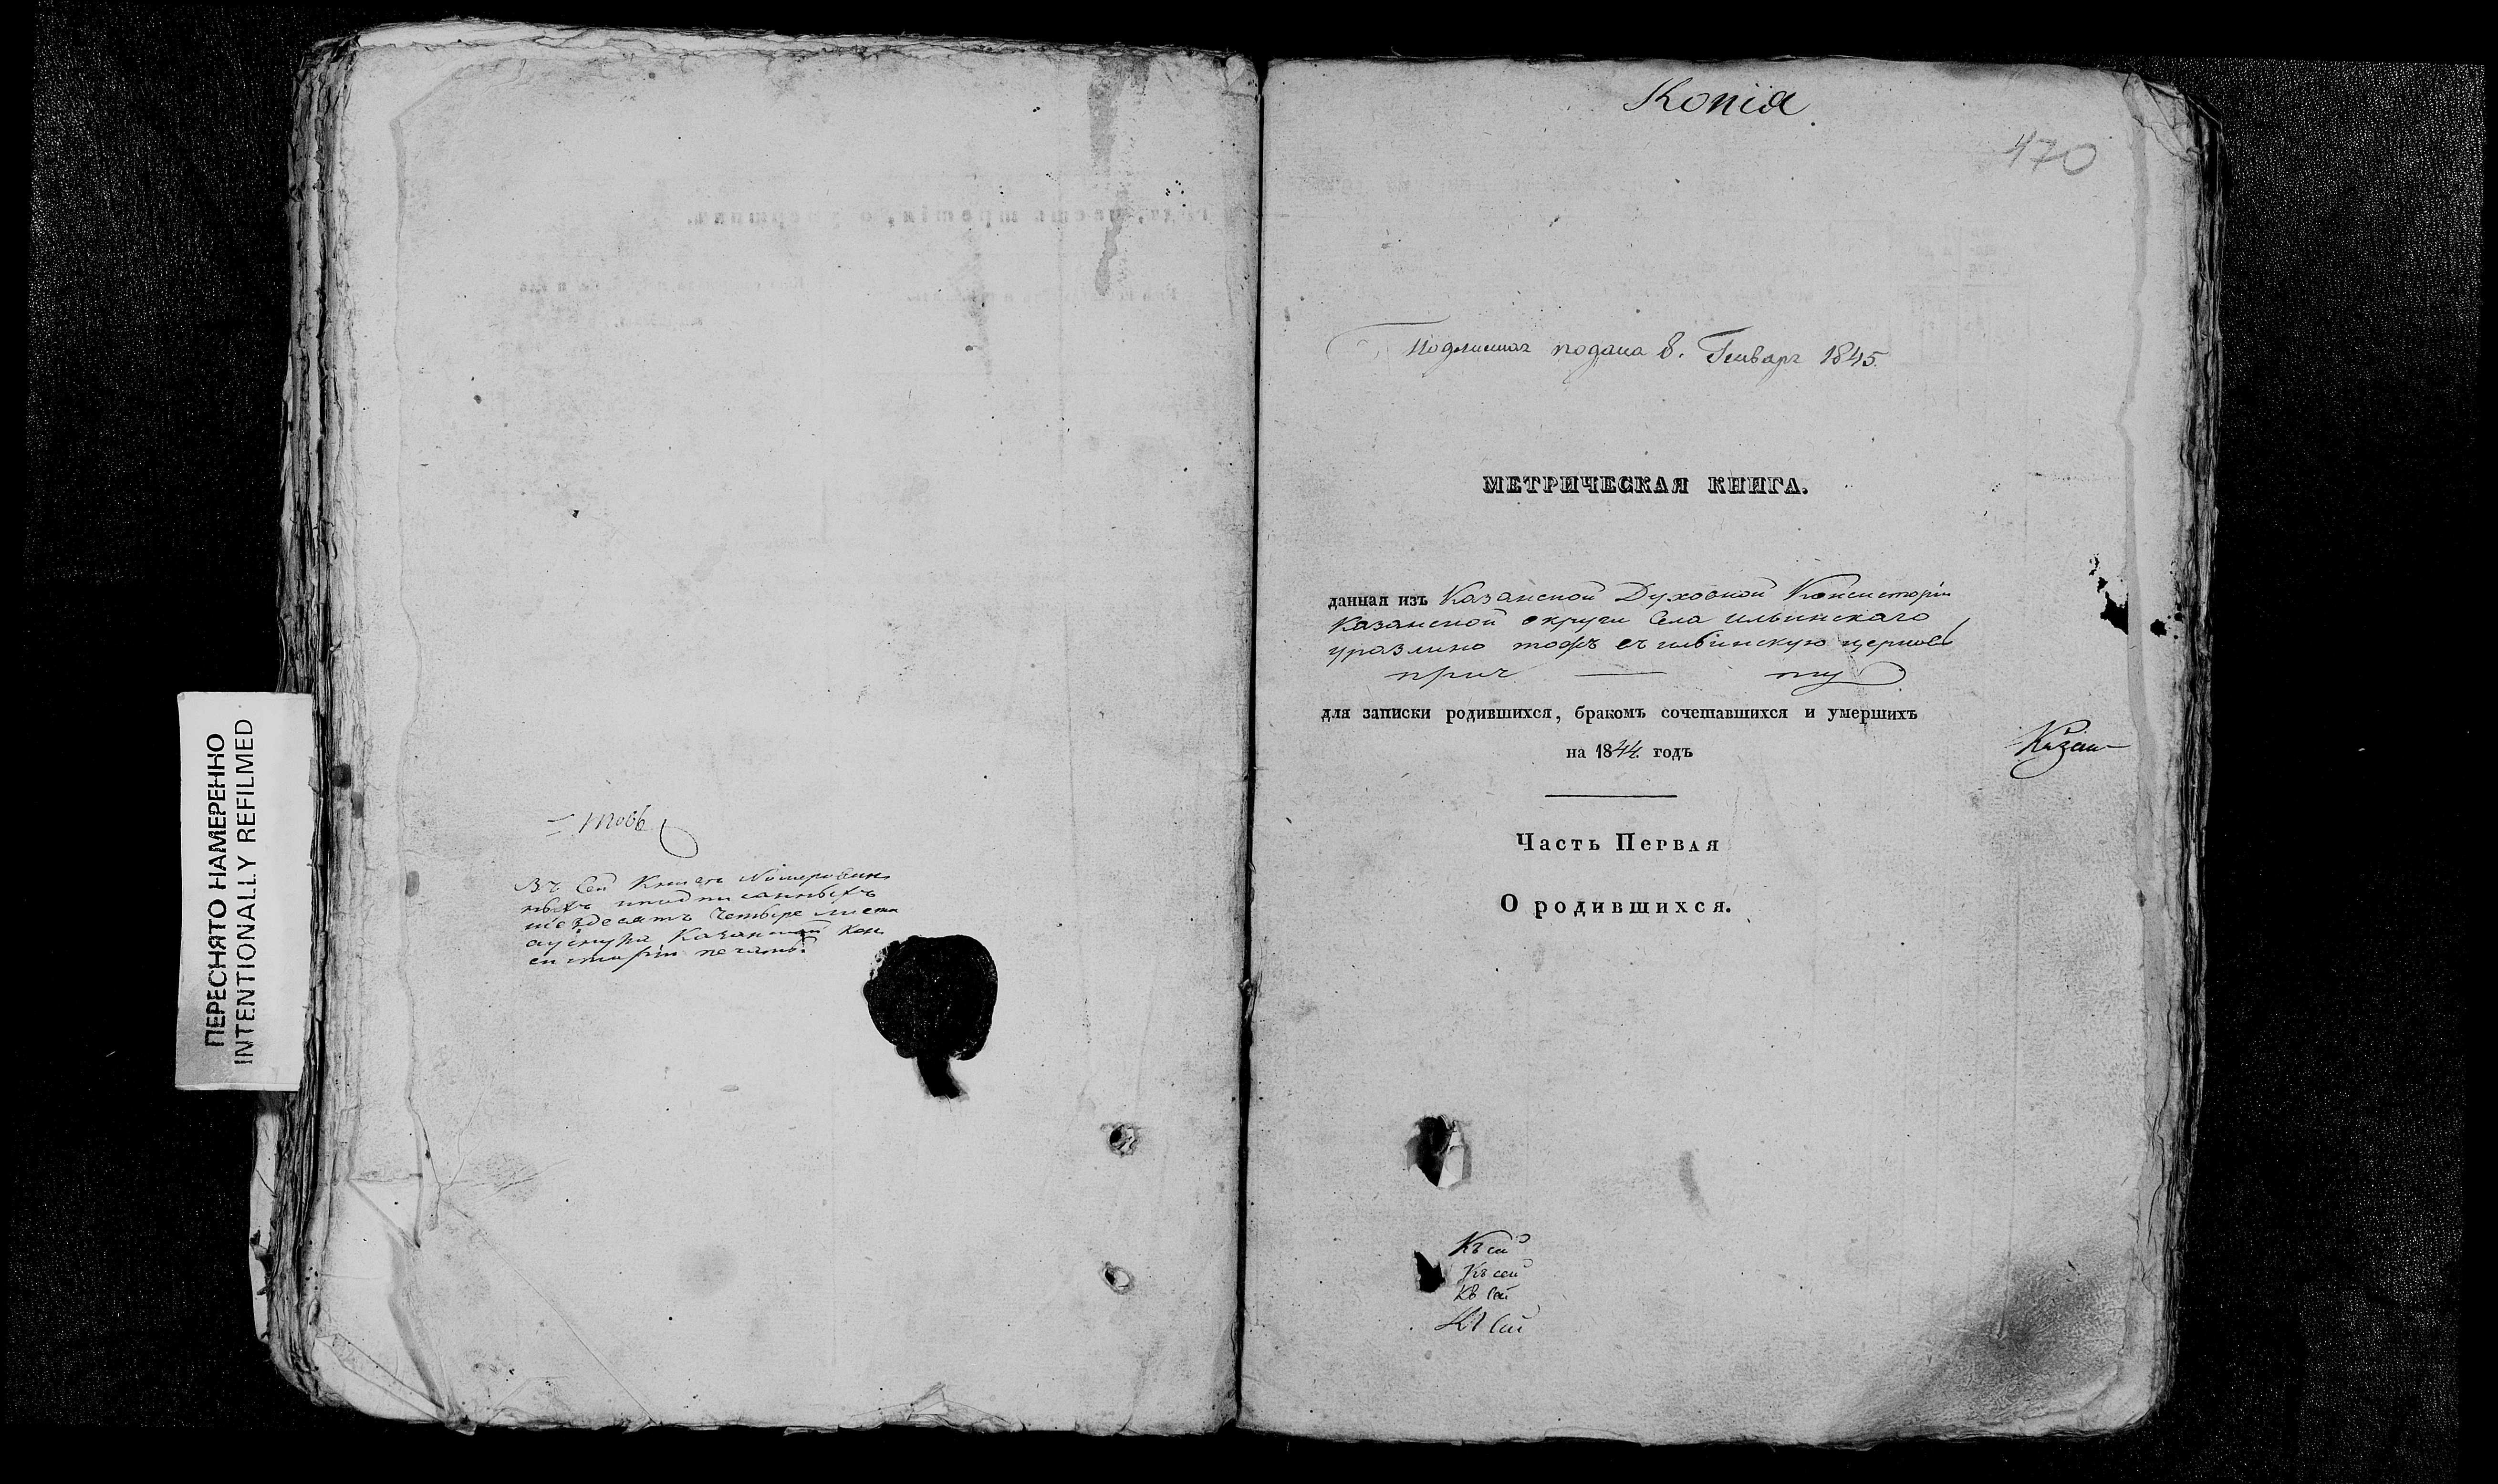 ПЕРЕСНЯТО НАМЕРЕННО
INTENTIONALLY REFILMED
Въ Сей Книге Номерован
ныхъ
шездесятъ четыре листа
Казанской Кон
систоріи печать.
Копія.
470
Подлинная подана в. Генваре 1845.
МЕТРИЧЕСКАЯ КНИГА.
данная изъ Казанской Духовной Консисторіи
Казанской округи Села ильинскаго
уразлино тожъ въ ильинскую церковь
прич — ту
для записки родившихся, бракомъ сочетавшихся и умершихъ
на 1844. годъ
Казан-
Часть Первая
О родившихся.
Къ сей
Къ сей
Къ сей
Къ сей